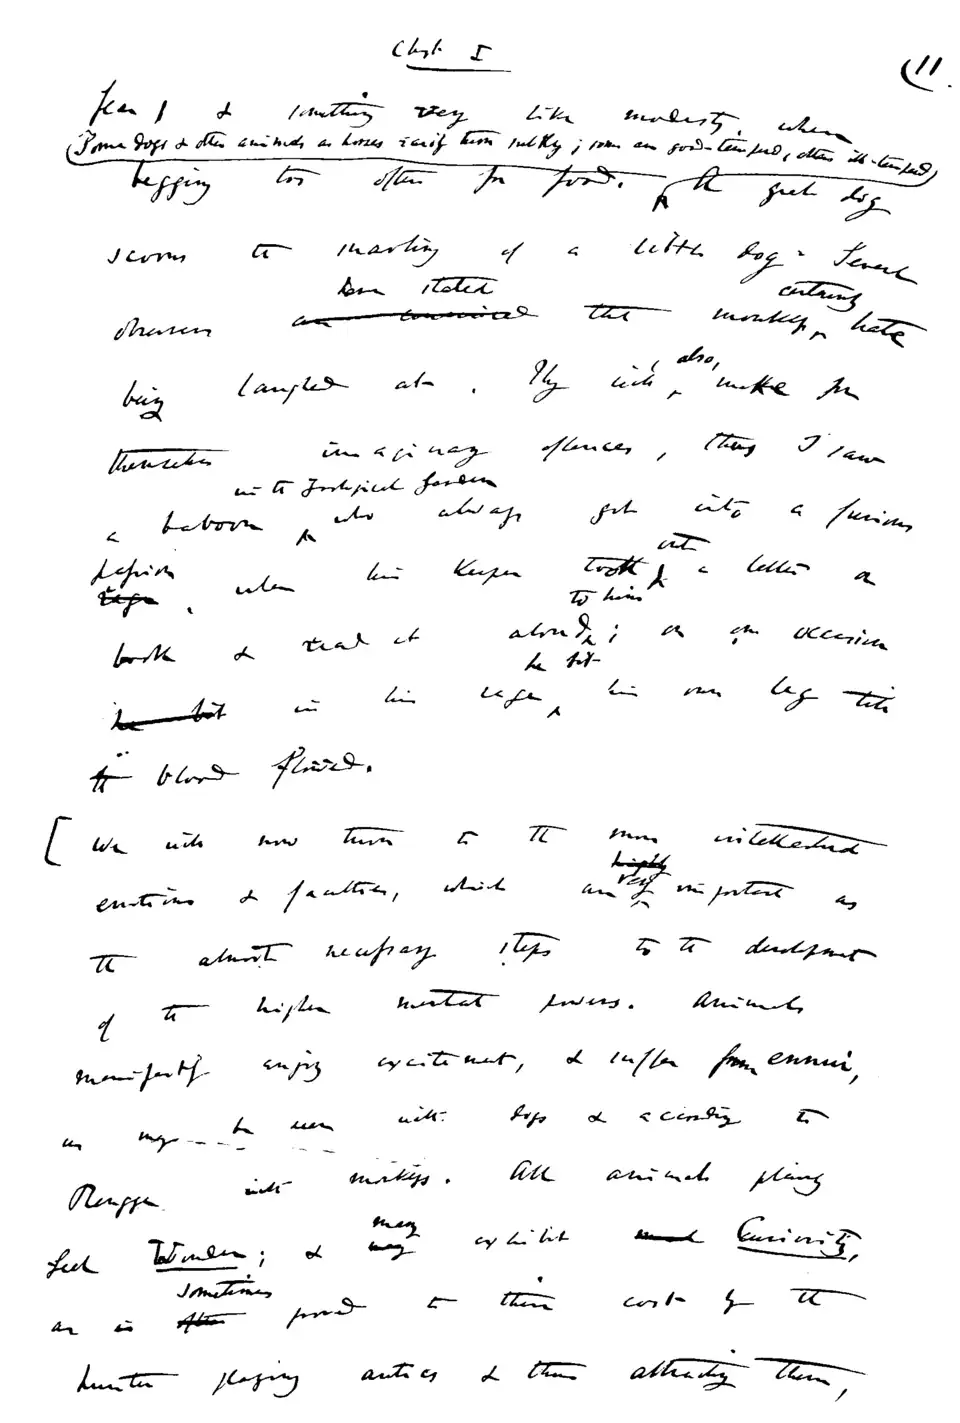 Chapt I
11.
fear, & something very like modesty when
Some dogs & other animals as horses easily turn sulky; some are good-tempered, others ill-tempered,
begging too often for food. A great dog
scorns the snarling of a little dog. Several
have stated certainly
observers are convinced that monkeys hate
being laughed at. They will, also, make for
themselves imaginary offences, thus I saw
in the Zoological Gardens
a baboon, who always got into a furious
passion out
rage, when his keeper took a letter or
to him
book & read it aloud; on one occasion
he bit
he bit in his rage, his own leg till
the blood flowed.
[We will now turn to the more intellectual
highly
emotions & faculties, which are very important as
the almost necessary steps to the development
of the higher mental powers. Animals
manifestly enjoy excitement, & suffer from ennui,
as may be seen with dogs & according to
Rengger with monkeys. All animals plainly
many
feel Wonder; & may exhibit much Curiosity,
sometimes
as is often proved to their cost by the
hunter playing antics & thus attracting them,